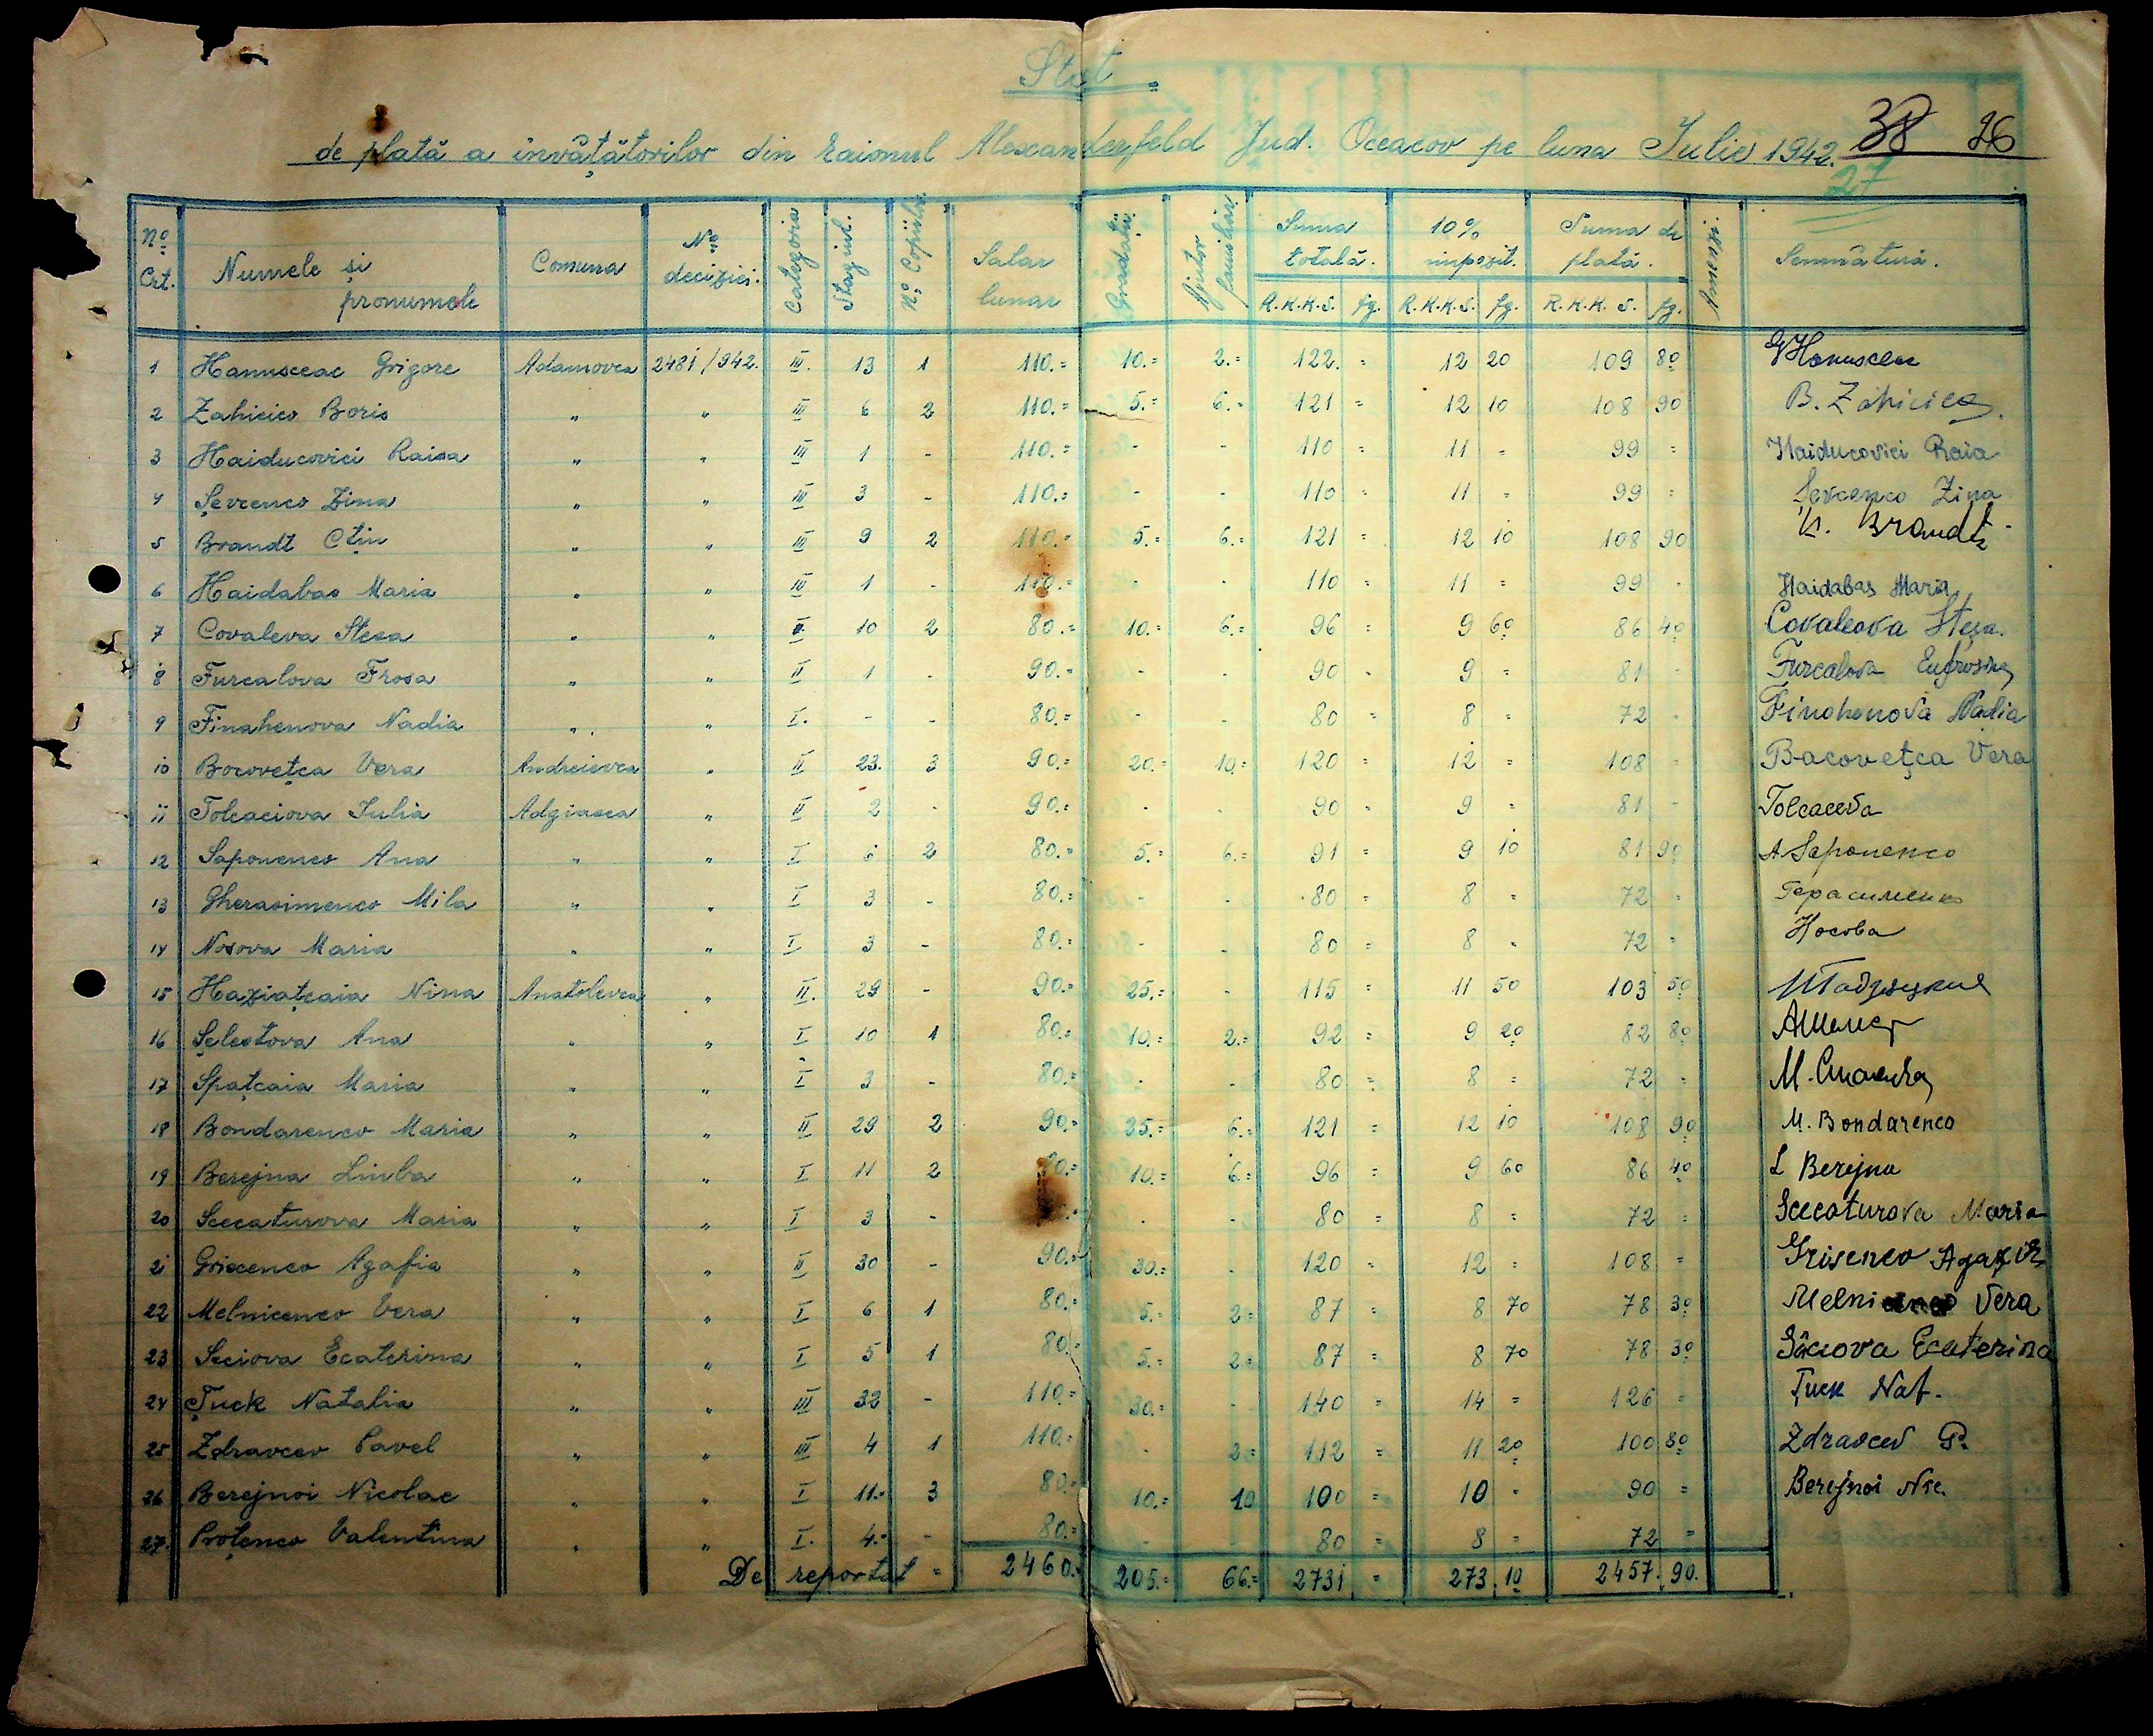 Stat
de plată a învățătorilor din Raionul Alexanderfeld Jud. Oceacov pe luna Iulie 1942. 38 26
27
No Crt. Numele și pronumele Comuna No deciziei. Categoria Stagiul. No Copiilor Salar lunar Gradații Ajutor familiar Suma totală. 10% impozit. Suma de plată. Amenzi. Semnătura.
R.K.K.S. fg. R.K.K.S. fg. R.K.K.S. fg.
1 Hanusceac Grigore Adamovca 2481/942. III. 13 1 110.= 10.= 2.= 122. = 12 20 109 80 G Hanusceac
2 Zahicico Boris " " III 6 2 110.= 5.= 6.= 121 = 12 10 108 90 B. Zahicico
3 Haiducovici Raisa " " III 1 - 110.= - - 110 = 11 = 99 = Haiducovici Raia
4 Șevcenco Zina " " III 3 - 110.= - - 110 = 11 = 99 = Șevcenco Zina
5 Brandt Ctin " " III 9 2 110.= 5.= 6.= 121 = 12 10 108 90 K. Brandt
6 Haidabas Maria " " III 1 - 110.= - - 110 = 11 = 99 - Haidabas Maria
7 Covaleva Steșa " " I 10 2 80.= 10.= 6.= 96 = 9 60 86 40 Covaleova Steșa.
8 Furcalova Frosa " " II 1 - 90.= - - 90 - 9 = 81 - Furcalova Eufrosina
9 Finahenova Nadia " " I. - - 80.= - - 80 = 8 = 72 - Finohenova Nadia
10 Bocovețca Vera Andreievca " II 23. 3 90.= 20.= 10.= 120 = 12 = 108 = Bacovețca Vera
11 Tolcaciova Iulia Adgiasca " II 2 - 90.= - - 90 = 9 = 81 - Tolcaceva
12 Saponenco Ana " " I 6 2 80.= 5.= 6.= 91 = 9 10 81 90 A Saponenco
13 Gherasimenco Mila " " I 3 - 80.= - - 80 = 8 = 72 = Герасименко
14 Nosova Maria " " I 3 - 80.= - - 80 = 8 = 72 = Носова
15 Haziațcaia Nina Anatolevca " II. 29 - 90.= 25.= - 115 = 11 50 103 50
16 Șelestova Ana " " I 10 1 80.= 10.= 2.= 92 = 9 20 82 80
17 Spațcaia Maria " " I 3 - 80.= - - 80 = 8 = 72 = М.
18 Bondarenco Maria " " II 29 2 90.= 25.= 6.= 121 = 12 10 108 90 M. Bondarenco
19 Berejna Liuba " " I 11 2 80.= 10.= 6.= 96 = 9 60 86 40 L Berejna
20 Scecaturova Maria " " I 3 - - - 80 = 8 = 72 = Scecaturova Maria
21 Grisenco Agafia " " II 30 - 90.= 30.= - 120 = 12 = 108 = Grisenco Agafia
22 Melnicenco Vera " " I 6 1 80.= 5.= 2= 87 = 8 70 78 30 Melnicenco Vera
23 Seciova Ecaterina " " I 5 1 80.= 5.= 2= 87 = 8 70 78 30 Sâciova Ecaterina
24 Țuck Natalia " " III 32 - 110.= 30.= - 140 = 14 = 126 = Țuck Nat.
25 Zdravcev Pavel " " III 4 1 110.= - 2= 112 = 11 20 100 80 Zdravcev P.
26 Berejnoi Nicolae " " I 11.- 3 80.= 10.= 10 100 = 10 - 90 = Berejnoi Nic.
27. Proțenco Valentina " " I. 4.- - 80.= - - 80 = 8 = 72 =
De reportat = 2460.= 205.= 66.= 2731 = 273.10 2457.90.